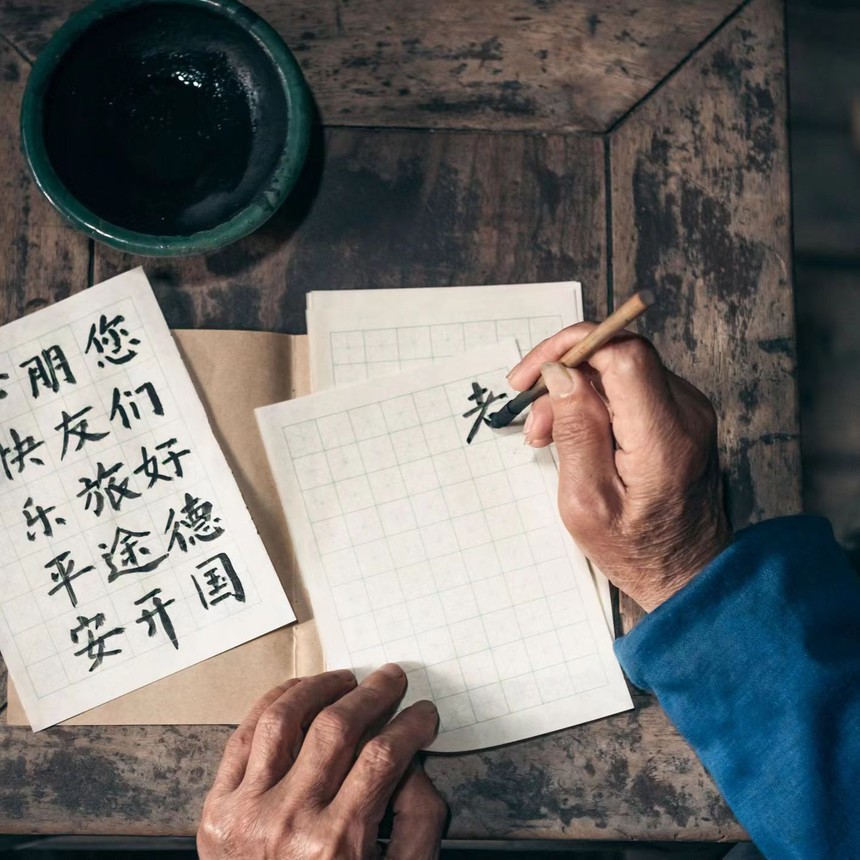 您们好德国
朋友旅途开
快乐平安
老